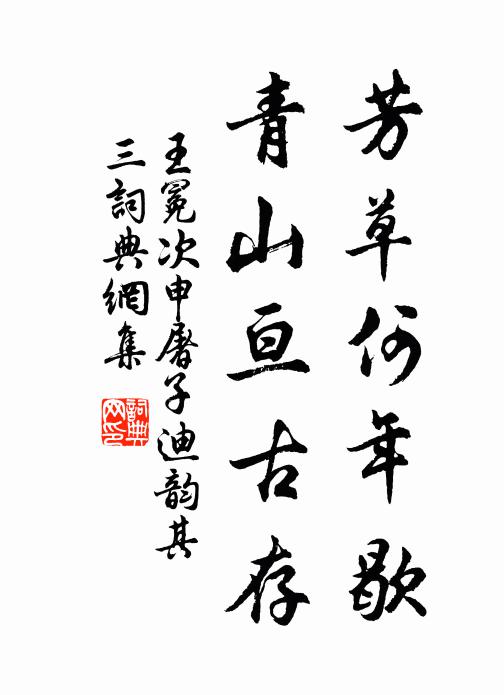 芳草何年歇
青山亘古存
王冕次申屠子迪韵其
三詞典網集
詞典
网印